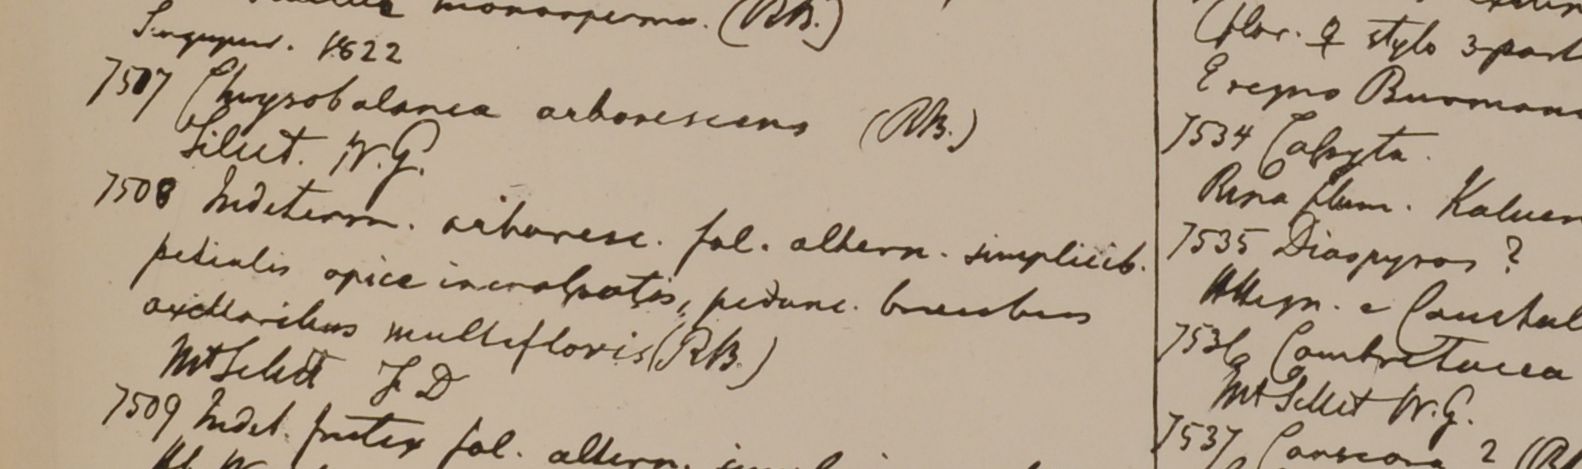 monosperma. (RB.)
Singapur. 1822
7507 Chrysobalanea arborescens (RB.)
Silet. W.G.
7508 Indeterm. arboresc. fol. altern. simplicib.
petiolis apice incrassatis, pedunc. brevibus
axillaribus multifloris (RB.)
Mt Silet FD
7509 Indet. frutex fol. altern.
Flor. ♀ stylo 3 part
E regno Burmann
7534 Calyta.
Ripa flum.
7535 Diospyros ?
7536 Combretacea
Mt Sillet W.G.
7537 Canscora ? (RB